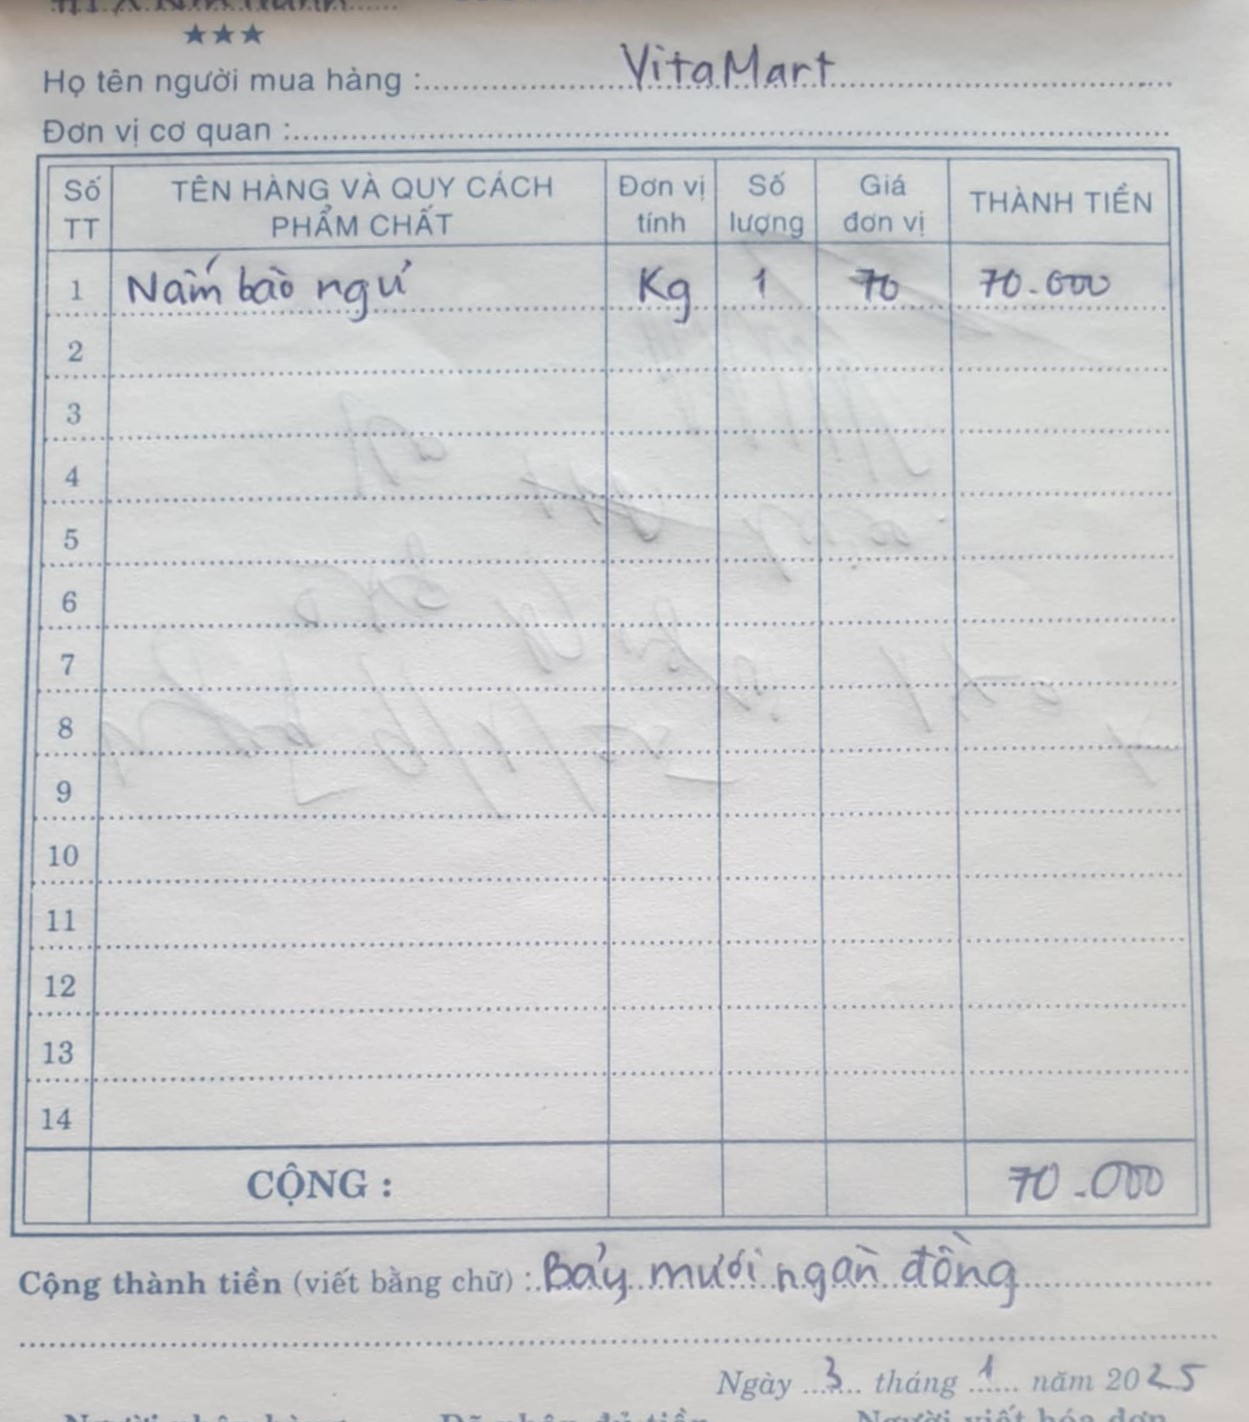 ★★★
Họ tên người mua hàng : VitaMart
Đơn vị cơ quan :
Số TT TÊN HÀNG VÀ QUY CÁCH PHẨM CHẤT Đơn vị tính Số lượng Giá đơn vị THÀNH TIỀN
1 Nấm bào ngư Kg 1 70 70.000
2
3
4
5
6
7
8
9
10
11
12
13
14
CỘNG : 70.000
Cộng thành tiền (viết bằng chữ) : Bảy mươi ngàn đồng
Ngày 3 tháng 1 năm 2025